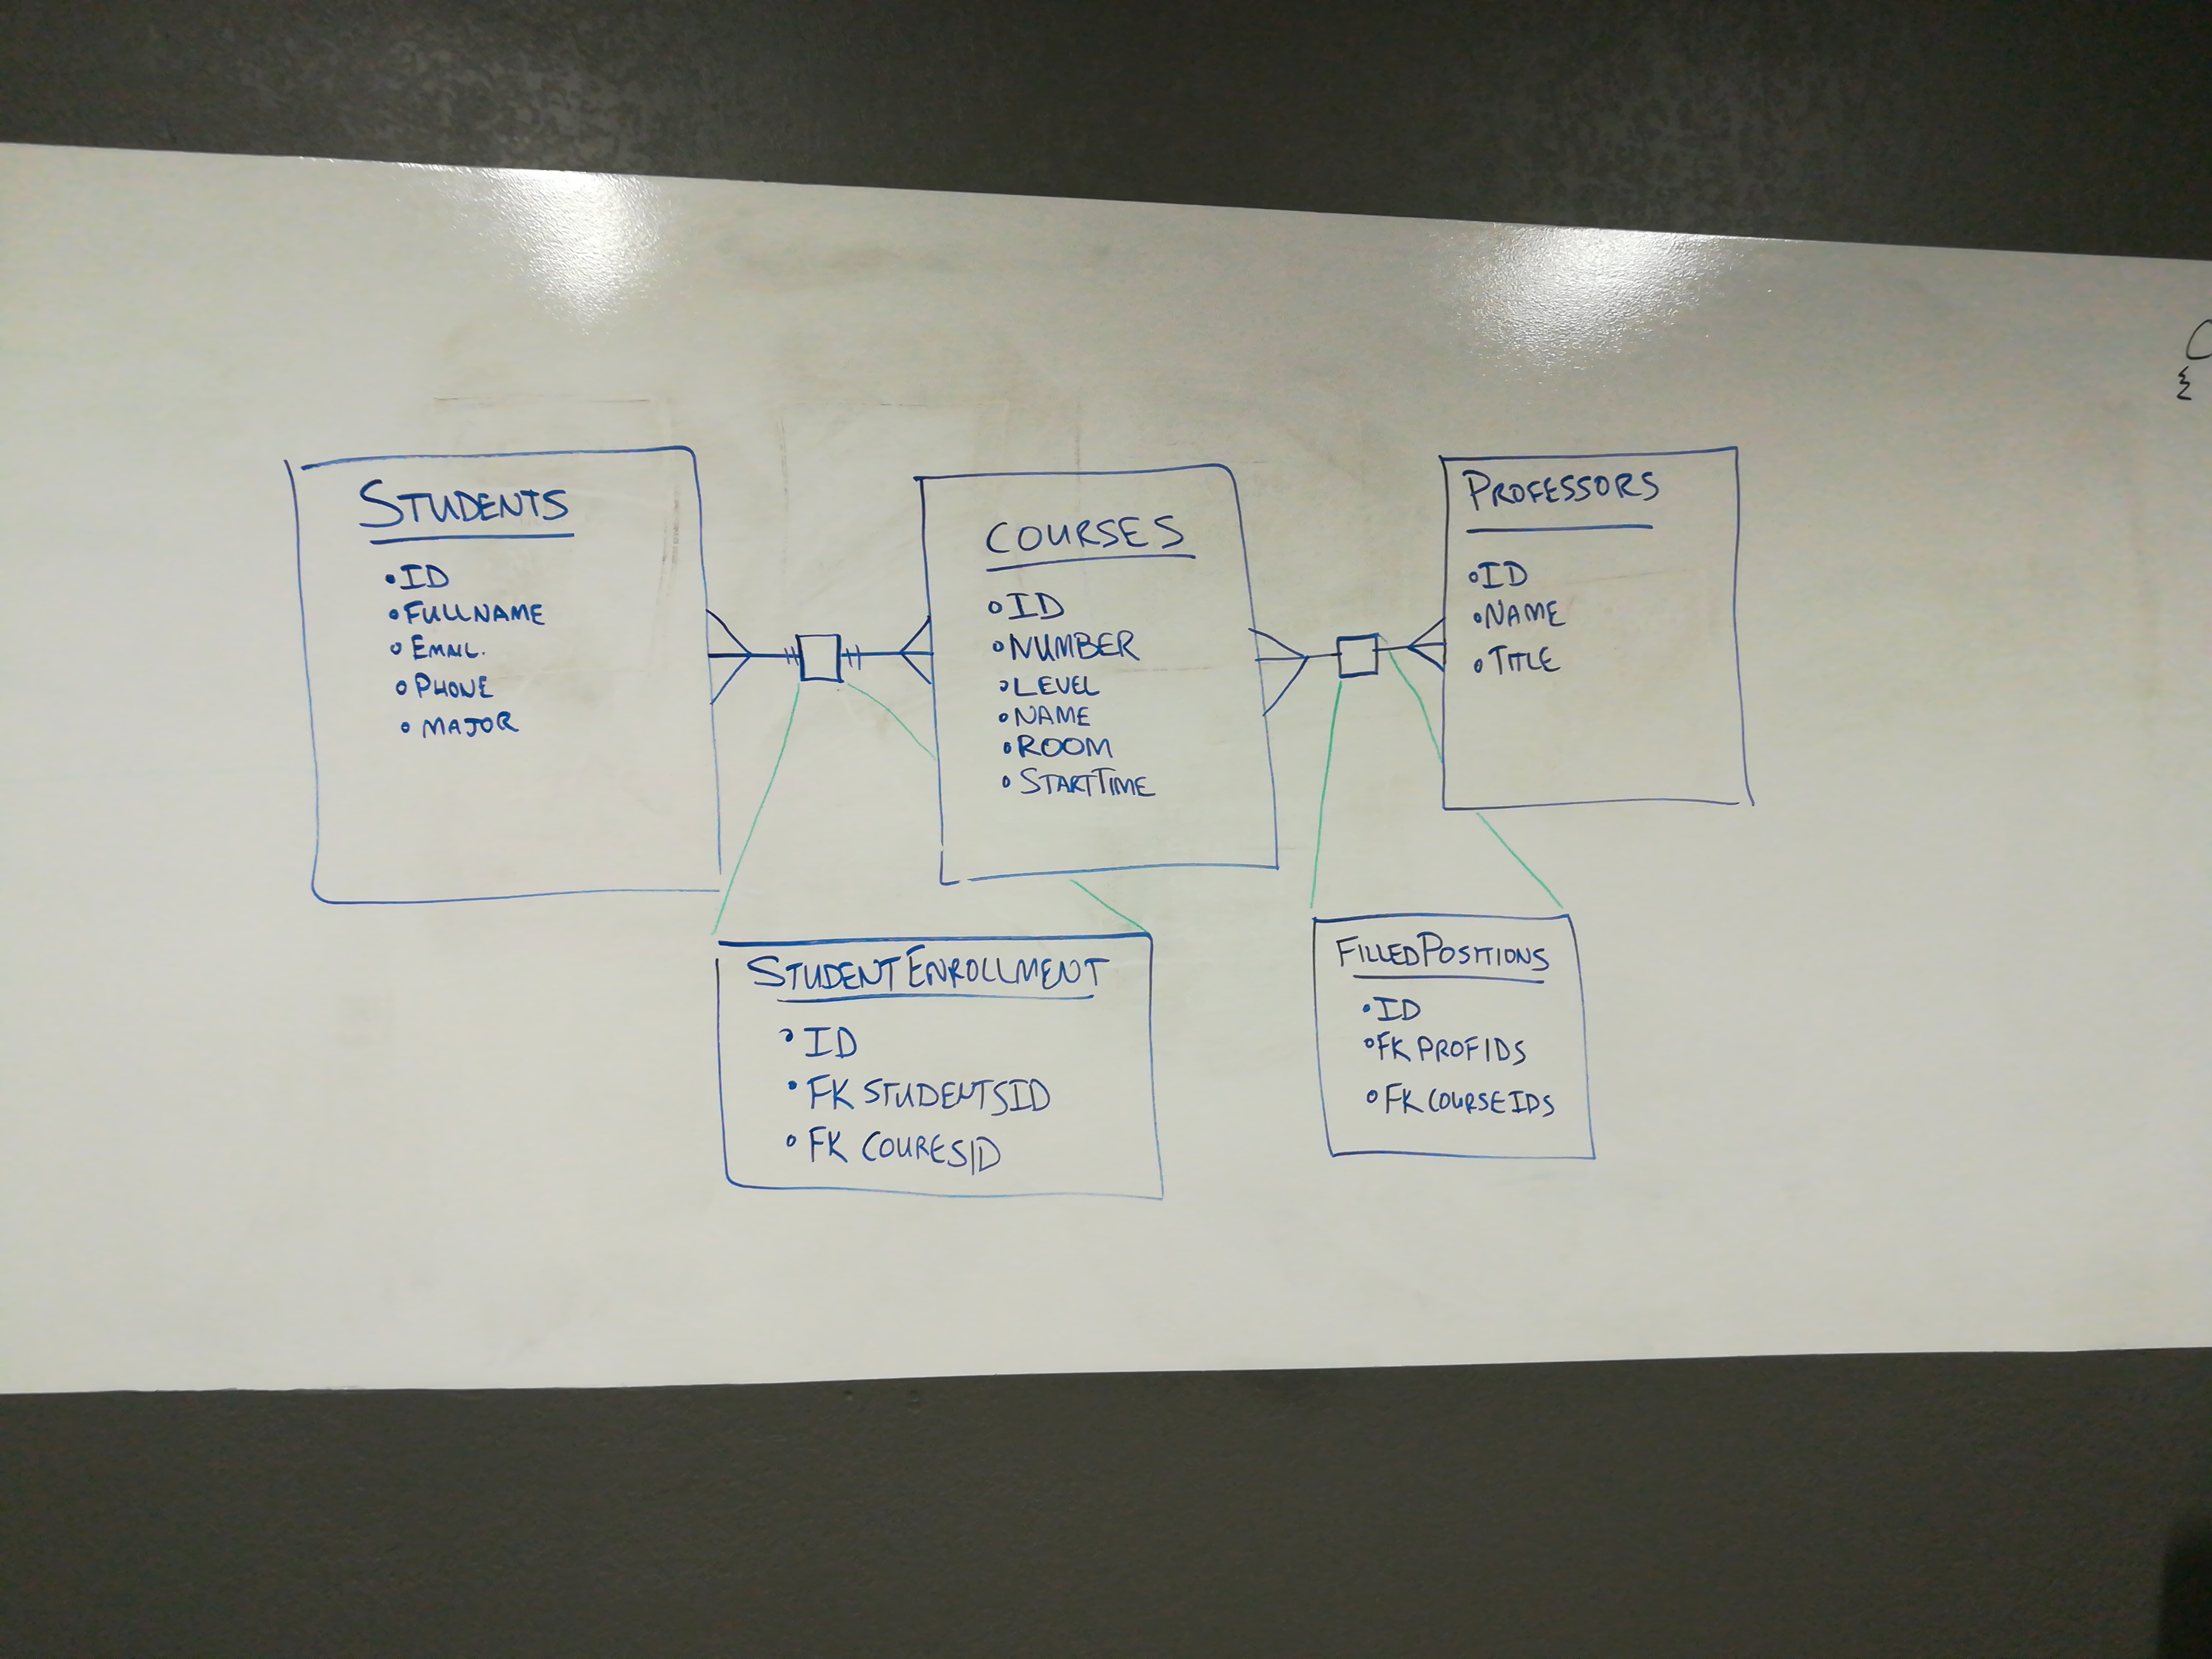 STUDENTS
ID
FULLNAME
EMAIL.
PHONE
MAJOR
COURSES
ID
NUMBER
LEVEL
NAME
ROOM
STARTTIME
PROFESSORS
ID
NAME
TITLE
STUDENTENROLLMENT
ID
FK STUDENTSID
FK COURESID
FILLEDPOSITIONS
ID
FK PROFIDS
FK COURSEIDS